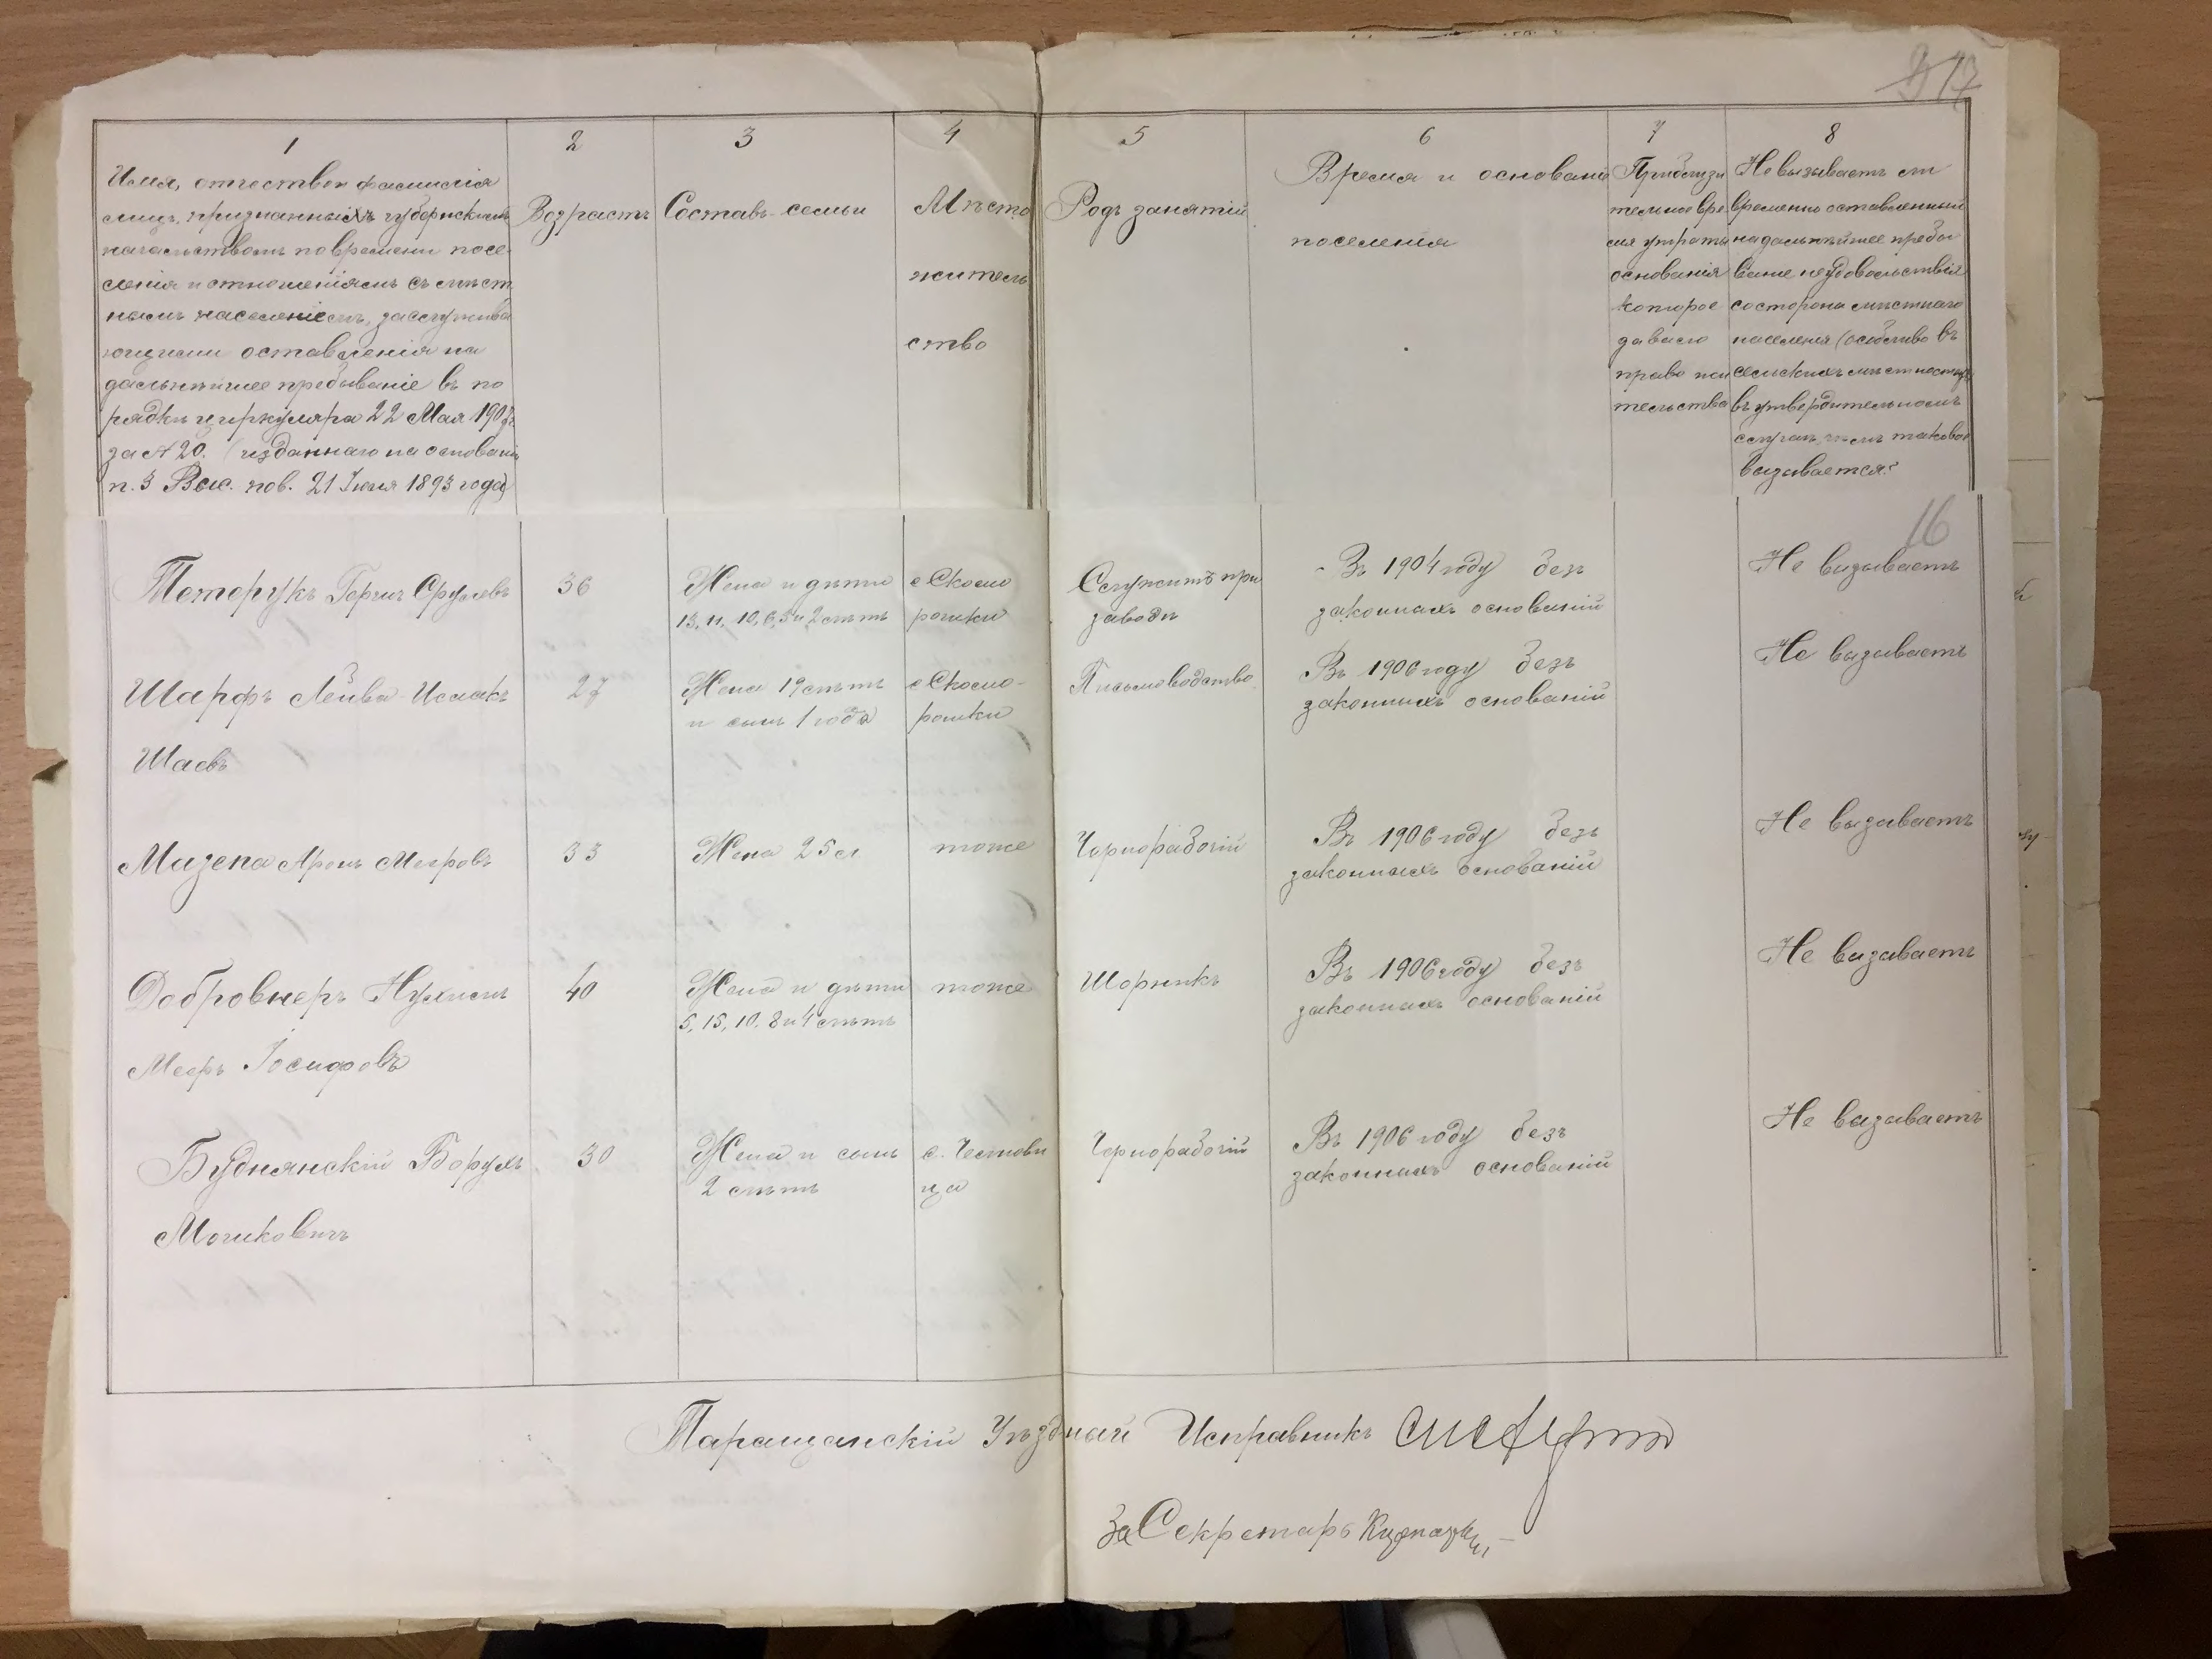 17
1
Имя, отчество и фамилія
лицъ, признанныхъ губернскимъ
начальствомъ по времени посе-
ленія и отношеніямъ съ мѣст
нымъ населеніемъ, заслужива
ющими оставленія на
дальнѣйшее пребываніе въ по
рядкѣ циркуляра 22 Мая 1907 г.
за № 20. (изданнаго на основаніи
п. 3 Выс. пов. 21 Іюня 1893 года)
2
Возрастъ
3
Составъ семьи
4
Мѣсто
житель
ство
5
Родъ занятій
6
Время и основаніе
поселенія
7
Приблизи
тельное вре
мя утраты
основанія
которое
давало
право жи
тельства
8
Не вызываетъ ли
временно оставленный
на дальнѣйшее пребы
ваніе неудовольствія
со стороны мѣстнаго
населенія (особливо въ
сельскихъ мѣстностяхъ
въ утвердительномъ
случаѣ, чѣмъ таковое
вызывается?
16
Петерукъ Гершъ Срулевъ
36
Жена и дѣти
13, 11, 10, 6, 5 и 2 лѣтъ
с Скомо
рошки
Служитъ при
заводѣ
Въ 1904 году безъ
законныхъ основаній
Не вызываетъ
Шарфъ Лейба-Исаакъ
Шаевъ
27
Жена 19 лѣтъ
и сынъ 1 года
с Скомо-
рошки
Письмоводство
Въ 1906 году безъ
законныхъ основаній
Не вызываетъ
Мазепа Аронъ Мееровъ
33
Жена 25 л
тоже
Чернорабочій
Въ 1906 году безъ
законныхъ основаній
Не вызываетъ
Добровнеръ Нухимъ
Мееръ Іосифовъ
40
Жена и дѣти
5, 15, 10, 8 и 4 лѣтъ
тоже
Шорникъ
Въ 1906 году безъ
законныхъ основаній
Не вызываетъ
Буднянскій Борухъ
Мошковичъ
30
Жена и сынъ
2 лѣтъ
с.
ца
Чернорабочій
Въ 1906 году безъ
законныхъ основаній
Не вызываетъ
Таращанскій Уѣздный Исправникъ
За Секретаръ